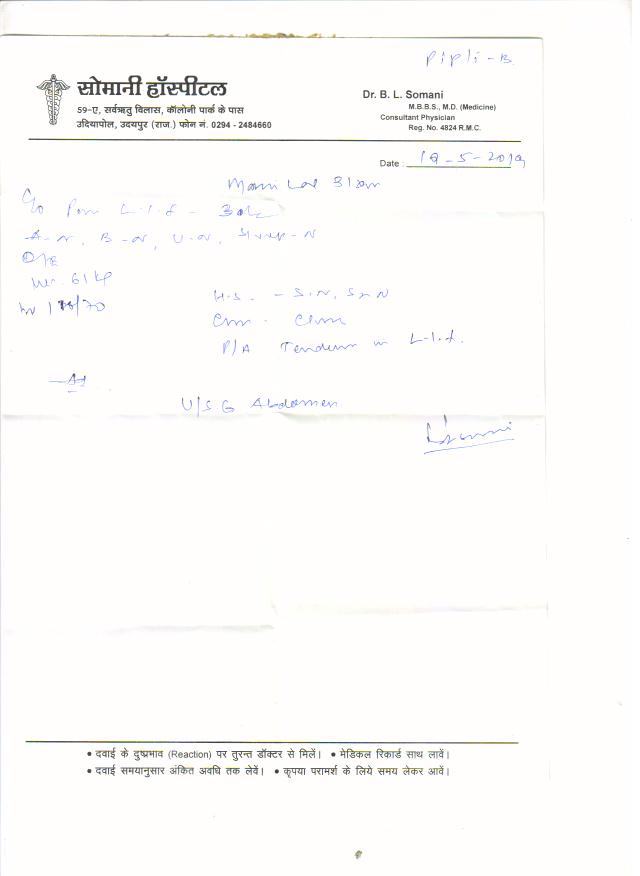 Pipli-B
सोमानी हॉस्पीटल
59-ए, सर्वऋतु विलास, कॉलोनी पार्क के पास
उदियापोल, उदयपुर (राज.) फोन नं. 0294 - 2484660
Dr. B. L. Somani
M.B.B.S., M.D. (Medicine)
Consultant Physician
Reg. No. 4824 R.M.C.
Date : 19-5-2019
Mani Lal
C/o Pain L.I.F -
A-N, B-N, U-N, Sleep-N
O/E
Wt. 61 kg
/70
H.S. - S.N, S2N
P/A Tenderness in L.I.F.
U/S G Abdomen
• दवाई के दुष्प्रभाव (Reaction) पर तुरन्त डॉक्टर से मिलें। • मेडिकल रिकार्ड साथ लावें।
• दवाई समयानुसार अंकित अवधि तक लेवें। • कृपया परामर्श के लिये समय लेकर आवें।